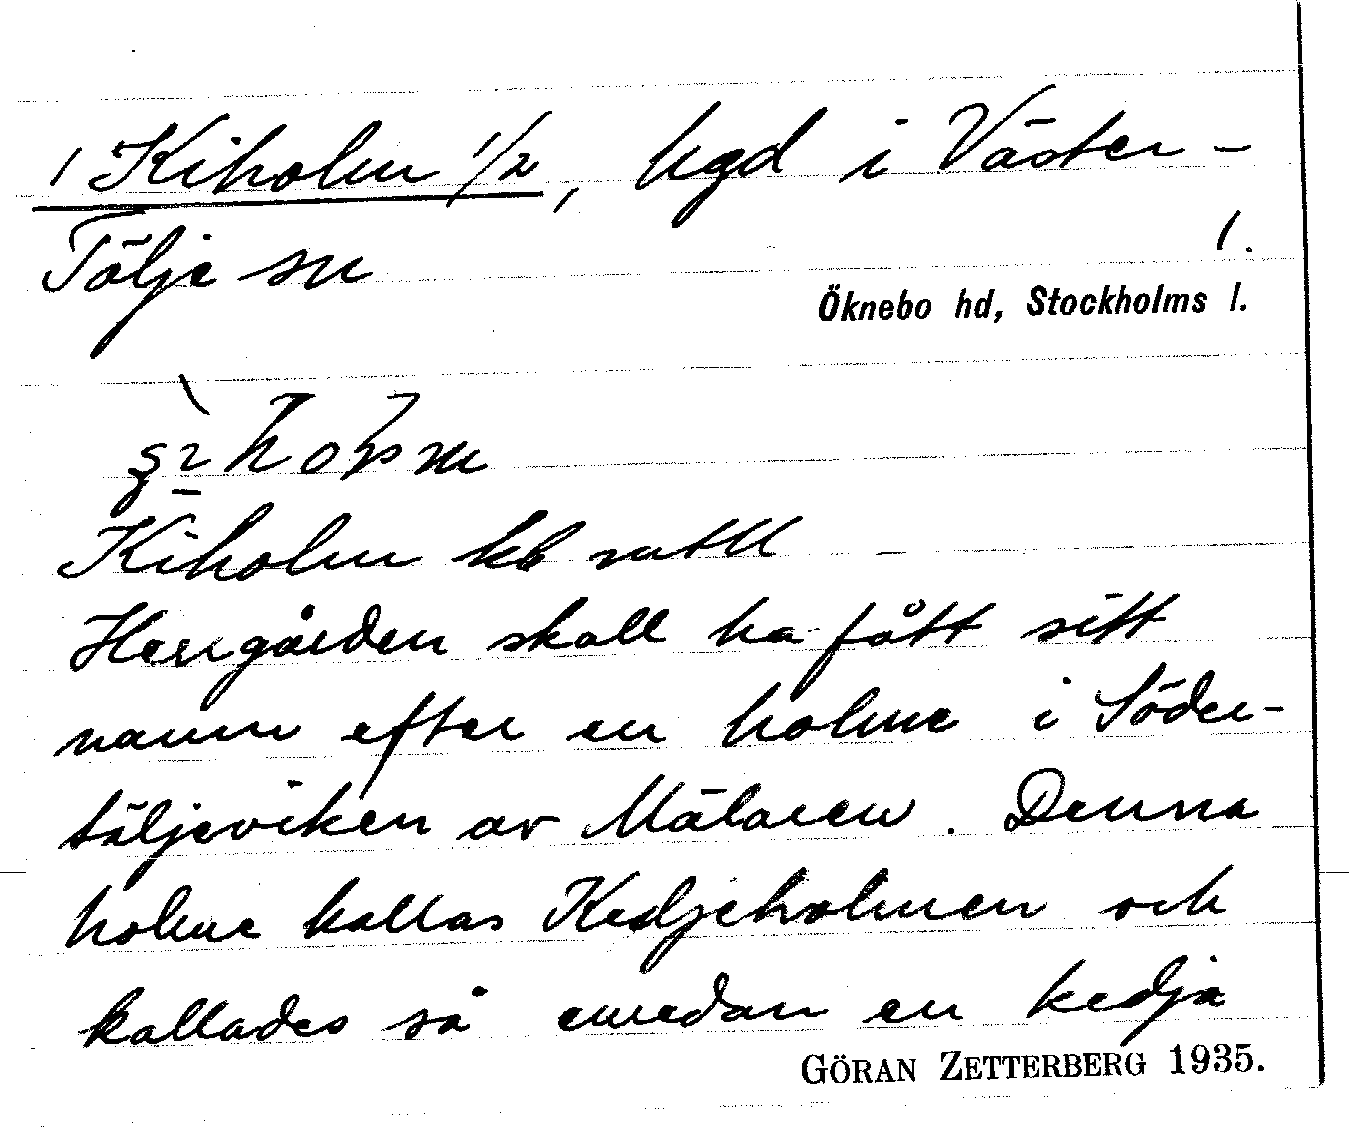 1 Kiholm 1/2, hgd i Väster-
Tälje sn
1.
Öknebo hd, Stockholms l.
Kiholm kb mtll
Herrgården skall ha fått sitt
namn efter en holme i Söder-
täljeviken av Mälaren. Denna
holme kallas Kedjeholmen och
kallades så emedan en kedja
GÖRAN ZETTERBERG 1935.